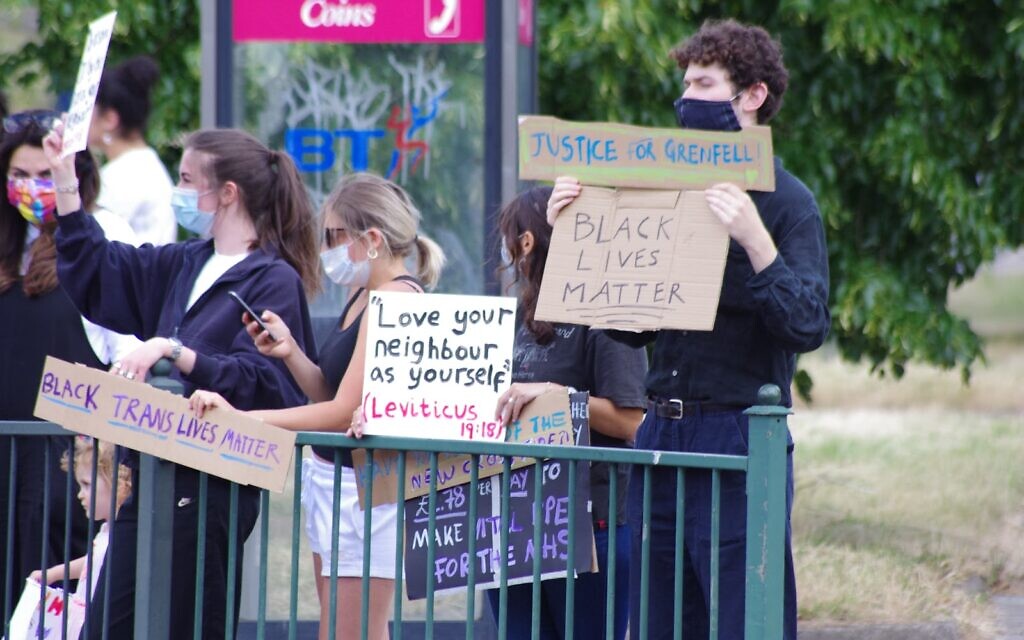 Coins
BT
JUSTICE FOR GRENFELL!
BLACK
LIVES
MATTER
"Love your
neighbour
as yourself"
(Leviticus
19:18)
BLACK TRANS LIVES MATTER
OF THE
NEW
£2.78
DAY TO
MAKE VITAL PPE
FOR THE NHS